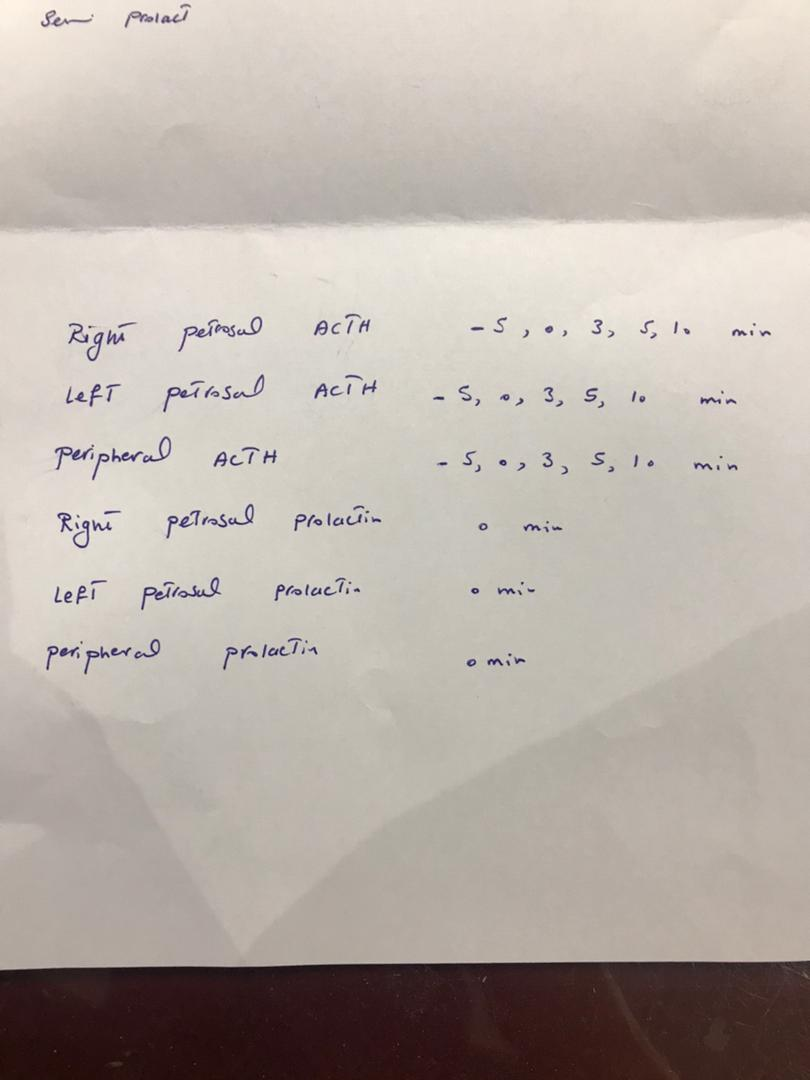 Semi Prolact
Right petrosal ACTH -5, 0, 3, 5, 10 min
Left petrosal ACTH -5, 0, 3, 5, 10 min
peripheral ACTH -5, 0, 3, 5, 10 min
Right petrosal prolactin 0 min
Left petrosal prolactin 0 min
peripheral prolactin 0 min